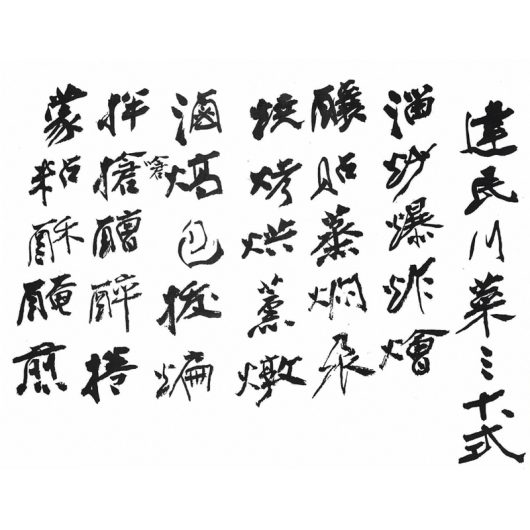 建民川菜三十式
溜炒爆炸燴
釀貼蒸燜汆
燒烤烘薰燉
滷包拔煸
拌搶嗆醩醉捲
蒙粘酥醃煎